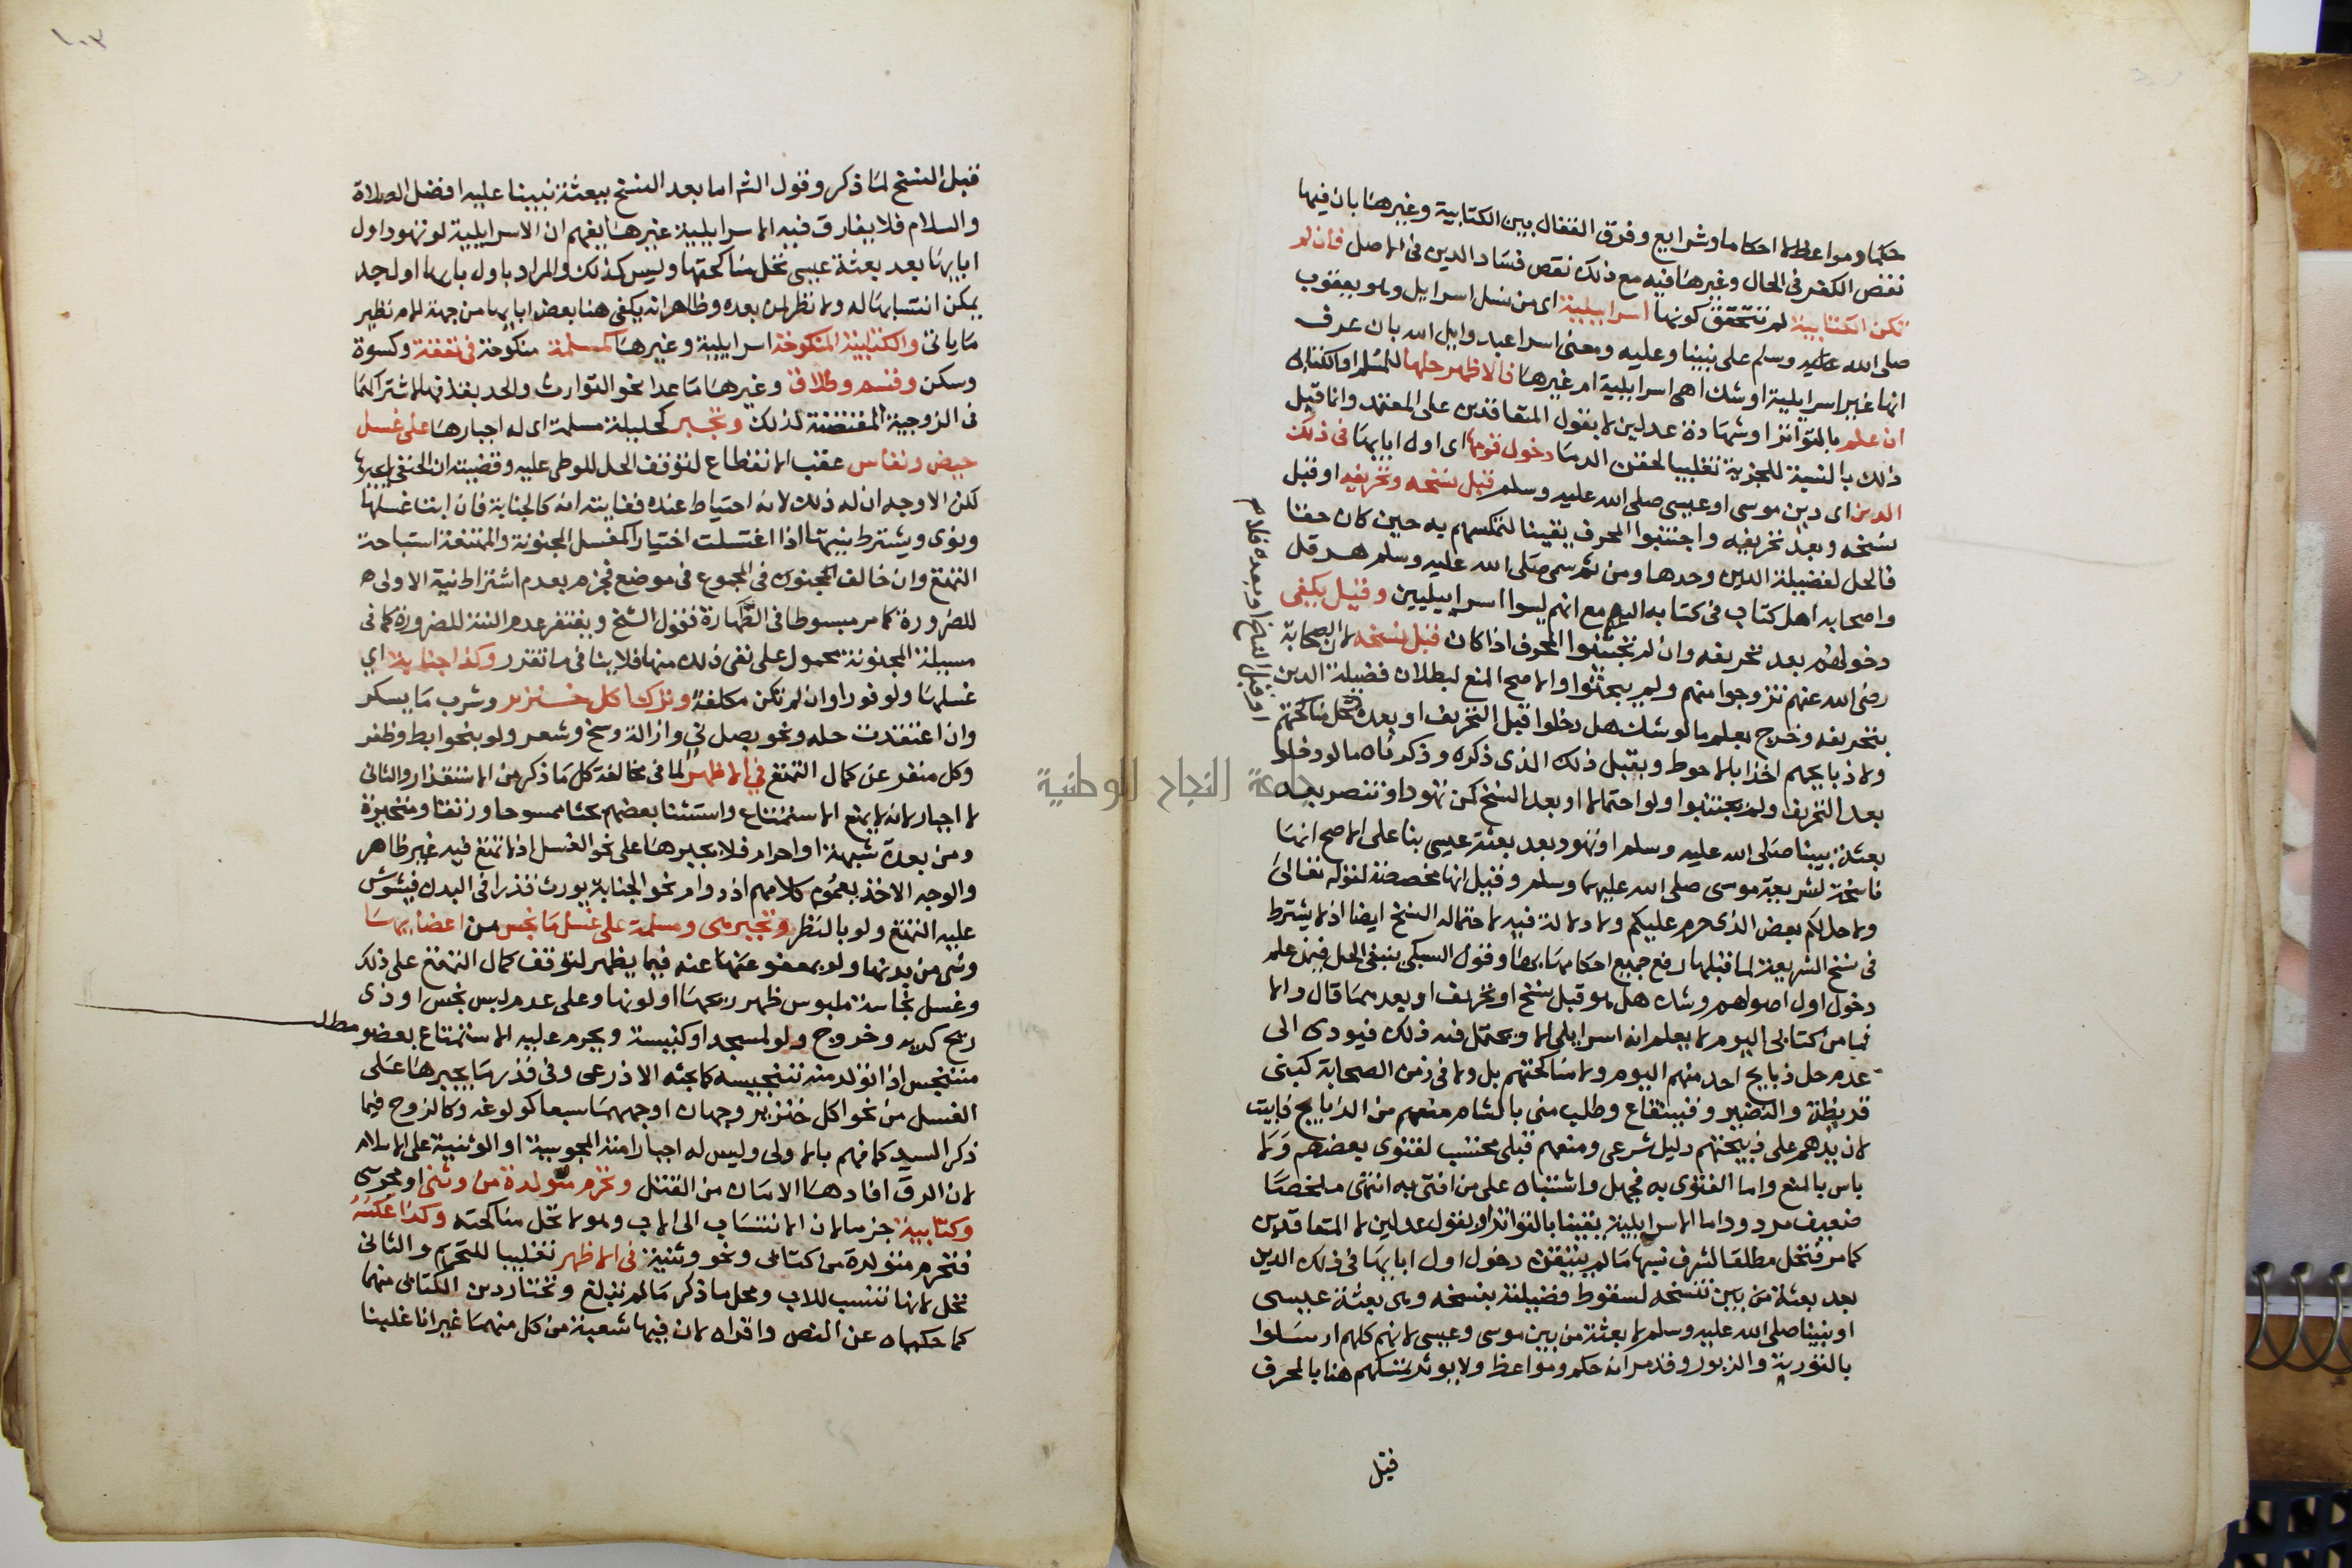 حكما ومواعظ لا احكاما وشرايع وفرق القفال بين الكتابية وغيرها بان فيها
نقص الكفر فى الحال وغيرها فيه مع ذلك نقص فساد الدين فى الاصل فان لم
تكن الكتابية لم نتحقق كونها اسراييلية اى من نسل اسرايل وهو يعقوب
صلى الله عليه وسلم على نبينا وعليه ومعنى اسرا عبد وايل الله بان عرف
انها غير اسرايلية او شك اهى اسراييلية ام غيرها فالاظهر حلها للمسلم او الكتابى
ان علم بالتواتر او شهادة عدلين لا بقول المتعاقدين على المعتمد وانما قبل
ذلك بالنسبة للجزية تغليبا لحقن الدما دخول قومها اى اول ابايها فى ذلك
الدين اى دين موسى او عيسى صلى الله عليه وسلم قبل نسخه وتحريفه او قبل
نسخه وبعد تحريفه واجتنبوا المحرف يقينا لتمسكهم به حين كان حقا
فالحل لفضيلة الدين وحدها ومن ثم سمى صلى الله عليه وسلم هرقل
واصحابه اهل كتاب فى كتابه اليهم مع انهم ليسوا اسراييليين وقيل يكفى
دخولهم بعد تحريفه وان لم يجتنبوا المحرف اذا كان قبل نسخه لان الصحابة
رضى الله عنهم تزوجوا منهم ولم يبحثوا والاصح المنع لبطلان فضيلة الدين
بتحريفه وخرج بعلم ما لو شك هل دخلوا قبل التحريف او بعده فلا تحل مناكحتهم
او قبل النسخ او بعده فلا م
ولا ذبايحهم اخذا بالاحوط وبقبل ذلك الذى ذكره وذكرناه ما لو دخلوا
بعد التحريف ولم يجتنبوا ولو احتمالا او بعد النسخ كمن تهود او تنصر بعد
بعثة نبينا صلى الله عليه وسلم او تهود بعد بعثة عيسى بنا على الاصح انها
ناسخة لشريعة موسى صلى الله عليهما وسلم وقيل انها مخصصة لقوله تعالى
ولاحل لكم بعض الذى حرم عليكم ولا دلالة فيه لاحتماله النسخ ايضا اذ لا يشترط
فى نسخ الشريعة لما قبلها رفع جميع احكامها وقول السبكى ينبغى الحل فيمن علم
دخول اول اصولهم وشك هل هو قبل نسخ او تحريف او بعدهما قال والا
فما من كتابى اليوم لا يعلم انه اسرايلى الا ويحتمل فيه ذلك فيودى الى
عدم حل ذبايح احد منهم اليوم ولا مناكحتهم بل ولا فى زمن الصحابة كبنى
قريظة والنضير وقينقاع وطلب منى بالشام منعهم من الذبايح فابيت
لان يدهم على ذبيحتهم دليل شرعى ومنعهم قبلى محتسب لفتوى بعضهم ولا
باس بالمنع واما الفتوى به فجهل واشتباه على من افتى به انتهى ملخصا
ضعيف مردود اما الاسرايلية يقينا بالتواتر او بقول عدلين لا المتعاقدين
كما مر فتحل مطلقا لشرف نسبها ما لم يتيقن دخول اول ابايها فى ذلك الدين
بعد بعثة من بين تنسخه لسقوط فضيلته بنسخه وهى بعثة عيسى
او نبينا صلى الله عليه وسلم لا بعثة من بين موسى وعيسى لانهم كلهم ارسلوا
بالتورية والزبور وقد مر انه حكم ومواعظ ولا يوثر تمسكهم هنا بالمحرف
قبل
١٠٣
قبل النسخ لما ذكر وقول الشر اما بعد النسخ ببعثة نبينا عليه افضل الصلاة
والسلام فلا يفارق فيه الاسراييلية غيرها يفهم ان الاسرايلية لو تهود اول
ابايها بعد بعثة عيسى تحل مناكحتها وليس كذلك والمراد باول بايها اول جد
يمكن انتسابها له ولا نظر لمن بعده وظاهر انه يكفى هنا بعض ابايها من جهة الام نظير
ما ياتى والكتابية المنكوحة اسرايلية وغيرها كمسلمة منكوحة فى نفقة وكسوة
وسكن وقسم وطلاق وغيرها ما عدا نحو التوارث والحد بقذفها لاشتراكهما
فى الزوجية المقتضية لذلك وتجبر كحليلة مسلمة اى له اجبارها على غسل
حيض ونفاس عقب الانقطاع لتوقف الحل للوطى عليه وقضيته ان الحنفى لا يجبرها
لكن الاوجه ان له ذلك لانه احتياط عنده فغايته انه كالجنابة فان ابت غسلها
ونوى ويشترط نيتها اذا اغتسلت اختيارا كمغسل المجنونة والممتنعة استباحة
التمتع وان خالف المجنون فى المجموع فى موضع فجزم بعدم اشتراط نية الاولى
للضرورة كما مر مبسوطا فى الطهارة فقول الشيخ ويغتفر عدم النية للضرورة كما فى
مسيلة المجنونة محمول على نفى ذلك منها فلا ينافى ما تقرر وكذا جنابة اي
غسلها ولو فورا وان لم تكن مكلفة وترك اكل خنزير وشرب ما يسكر
وان اعتقدت حله ونحو بصل نى وازالة وسخ وشعر ولو بنحو ابط وظفر
وكل منفر عن كمال التمتع فى الاظهر لما فى مخالفة كل ما ذكر من الاستقذار والثانى
لا اجبار لانه لا يمنع الاستمتاع واستثنا بعضهم بحثا ممسوحا ورتقا ومتحيرة
ومن بعدة شبهة او احرام فلا يجبرها على نحو الغسل اذ لا تمتع فيه غير ظاهر
والوجه الاخذ بعموم كلامهم اذ دوام نحو الجنابة يورث قذرا فى البدن فيشوش
عليه التمتع ولو بالنظر وتجبر هى ومسلمة على غسل ما نجس من اعضايها
وشى من بدنها ولو بمعفو عنها عنه فيما يظهر لتوقف كمال التمتع على ذلك
وغسل نجاسة ملبوس ظهر ريحها او لونها وعلى عدم لبس نجس او ذى
ريح كريه وخروج ولو لمسجد او كنيسة ويحرم عليه الاستمتاع بعضو
مطلب
متنجس اذا تولد منه تنجيسه كما بحثه الاذرعى وفى قدرها يجبرها على
الغسل من نحو اكل خنزير وجهان اوجههما سبعا كولوغه وكالزوج فيما
ذكر السيد كما فهم بالاولى وليس له اجبار امته المجوسية او الوثنية على الاسلام
لان الرق افادها الامان من القتل وتحرم متولدة من وثنى او مجوسى
وكتابية جزما لان الانتساب الى الاب وهو لا تحل مناكحته وكذا عكسه
فتحرم متولدة من كتابى ونحو وثنية فى الاظهر تغليبا للتحريم والثانى
تحل لانها تنسب للاب ومحل ما ذكر ما لم تبلغ وتختار دين الكتابى منهما
كما حكياه عن النص واقراه لان فيها شعبة من كل منهما غير انا غلبنا
جامعة النجاح الوطنية